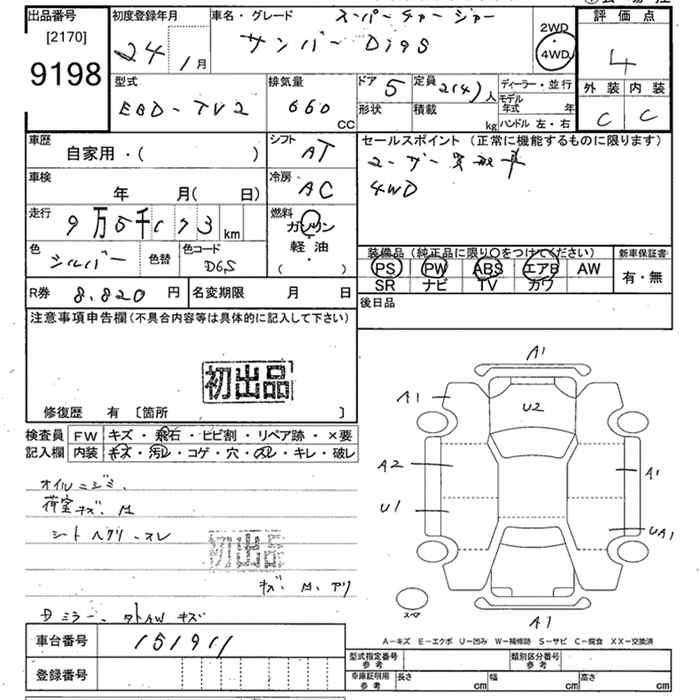 出品番号
[2170]
9198
初度登録年月
24 1月
車名・グレード
スーパーチャージャー
サンバー Dias
2WD
4WD
評価点
4
外装 内装
C C
型式
EBD-TV2
排気量
660
CC
ドア 5
形状
定員 2(4)人
積載
kg
ディーラー・並行
モデル年式 年
ハンドル 左・右
車歴
自家用・( )
シフト
AT
セールスポイント (正常に機能するものに限ります)
4WD
車検
年 月( 日)
冷房
AC
走行
9万5千173km
燃料
ガソリン
軽・油
( )
色
シルバー
色替
色コード
D6S
装備品(純正品に限り○をつけてください)
PS PW ABS エアB AW
SR ナビ TV カワ
新車保証書
有・無
R券 8,820円
名変期限 月 日
後日品
注意事項申告欄(不具合内容等は具体的に記入して下さい)
初出品
修復歴 有 〔箇所 〕
検査員
記入欄
FW キズ・飛石・ヒビ割・リペア跡・×要
内装 キズ・汚レ・コゲ・穴・スレ・キレ・破レ
オイルニジミ、
荷室キズ、
シート ヘタリ・スレ
初出品
ミラー、 キズ
A1
A1
U2
A2
A1
U1
UA1
スペア
A1
A-キズ E-エクボ U-凹み W-補修跡 S-サビ C-腐食 XX-交換済
車台番号 151911
登録番号
型式指定番号
参考
類別区分番号
参考
車庫証明用
参考
長さ cm 幅 cm 高さ cm